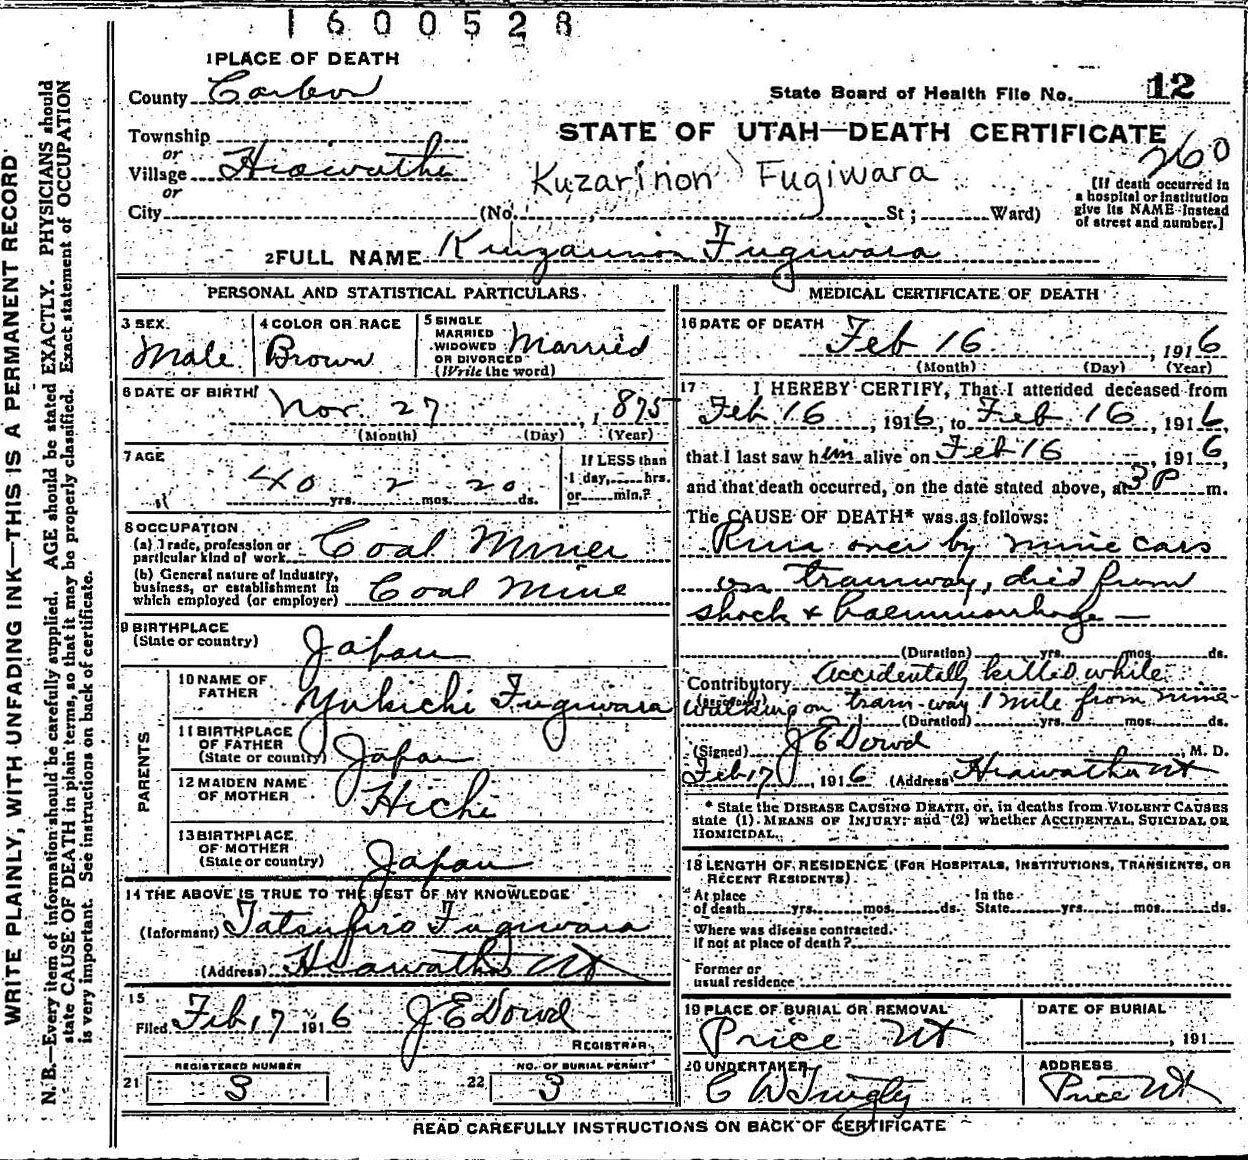 1600528
1 PLACE OF DEATH
County Carbon
State Board of Health File No. 12
Township
or
Village Hiawatha
or
City (No. St; Ward)
STATE OF UTAH—DEATH CERTIFICATE
260
Kuzarinon Fugiwara
[If death occurred in
a hospital or institution
give its NAME instead
of street and number.]
2 FULL NAME Kuzarinon Fugiwara
PERSONAL AND STATISTICAL PARTICULARS
3 SEX Male
4 COLOR OR RACE Brown
5 SINGLE
MARRIED
WIDOWED
OR DIVORCED
(Write the word) Married
6 DATE OF BIRTH Nov. 27, 1875
(Month) (Day) (Year)
7 AGE 40 yrs. 2 mos. 20 ds.
If LESS than
1 day, hrs.
or min.?
8 OCCUPATION
(a) Trade, profession or
particular kind of work Coal Miner
(b) General nature of industry,
business, or establishment in
which employed (or employer) Coal Mine
9 BIRTHPLACE
(State or country) Japan
PARENTS
10 NAME OF
FATHER Yukichi Fugiwara
11 BIRTHPLACE
OF FATHER
(State or country) Japan
12 MAIDEN NAME
OF MOTHER Hichi
13 BIRTHPLACE
OF MOTHER
(State or country) Japan
14 THE ABOVE IS TRUE TO THE BEST OF MY KNOWLEDGE
(Informant) Tatsujiro Fugiwara
(Address) Hiawatha Ut
15
Filed Feb 17 1916 J E Dowd
REGISTRAR.
REGISTERED NUMBER
21 3
NO. OF BURIAL PERMIT
22 3
MEDICAL CERTIFICATE OF DEATH
16 DATE OF DEATH Feb 16, 1916
(Month) (Day) (Year)
17 I HEREBY CERTIFY, That I attended deceased from
Feb 16, 1916, to Feb 16, 1916,
that I last saw him alive on Feb 16, 1916,
and that death occurred, on the date stated above, at 3 P m.
The CAUSE OF DEATH* was as follows:
Run over by mine cars
on tramway, died from
shock & haemmorrhage —
(Duration) yrs. mos. ds.
Contributory Accidentally killed while
walking on tram-way 1 mile from mine
(Duration) yrs. mos. ds.
(Signed) J E Dowd M. D.
Feb 17 1916 (Address) Hiawatha Ut
* State the DISEASE CAUSING DEATH, or, in deaths from VIOLENT CAUSES
state (1) MEANS OF INJURY; and (2) whether ACCIDENTAL, SUICIDAL OR
HOMICIDAL.
18 LENGTH OF RESIDENCE (FOR HOSPITALS, INSTITUTIONS, TRANSIENTS, OR
RECENT RESIDENTS)
At place
of death yrs. mos. ds.
In the
State yrs. mos. ds.
Where was disease contracted.
If not at place of death?
Former or
usual residence
19 PLACE OF BURIAL OR REMOVAL
Price Ut
DATE OF BURIAL
, 191
20 UNDERTAKER
C W
ADDRESS
Price Ut
READ CAREFULLY INSTRUCTIONS ON BACK OF CERTIFICATE
WRITE PLAINLY, WITH UNFADING INK—THIS IS A PERMANENT RECORD
N. B.—Every item of information should be carefully supplied. AGE should be stated EXACTLY. PHYSICIANS should
state CAUSE OF DEATH in plain terms, so that it may be properly classified. Exact statement of OCCUPATION
is very important. See instructions on back of certificate.